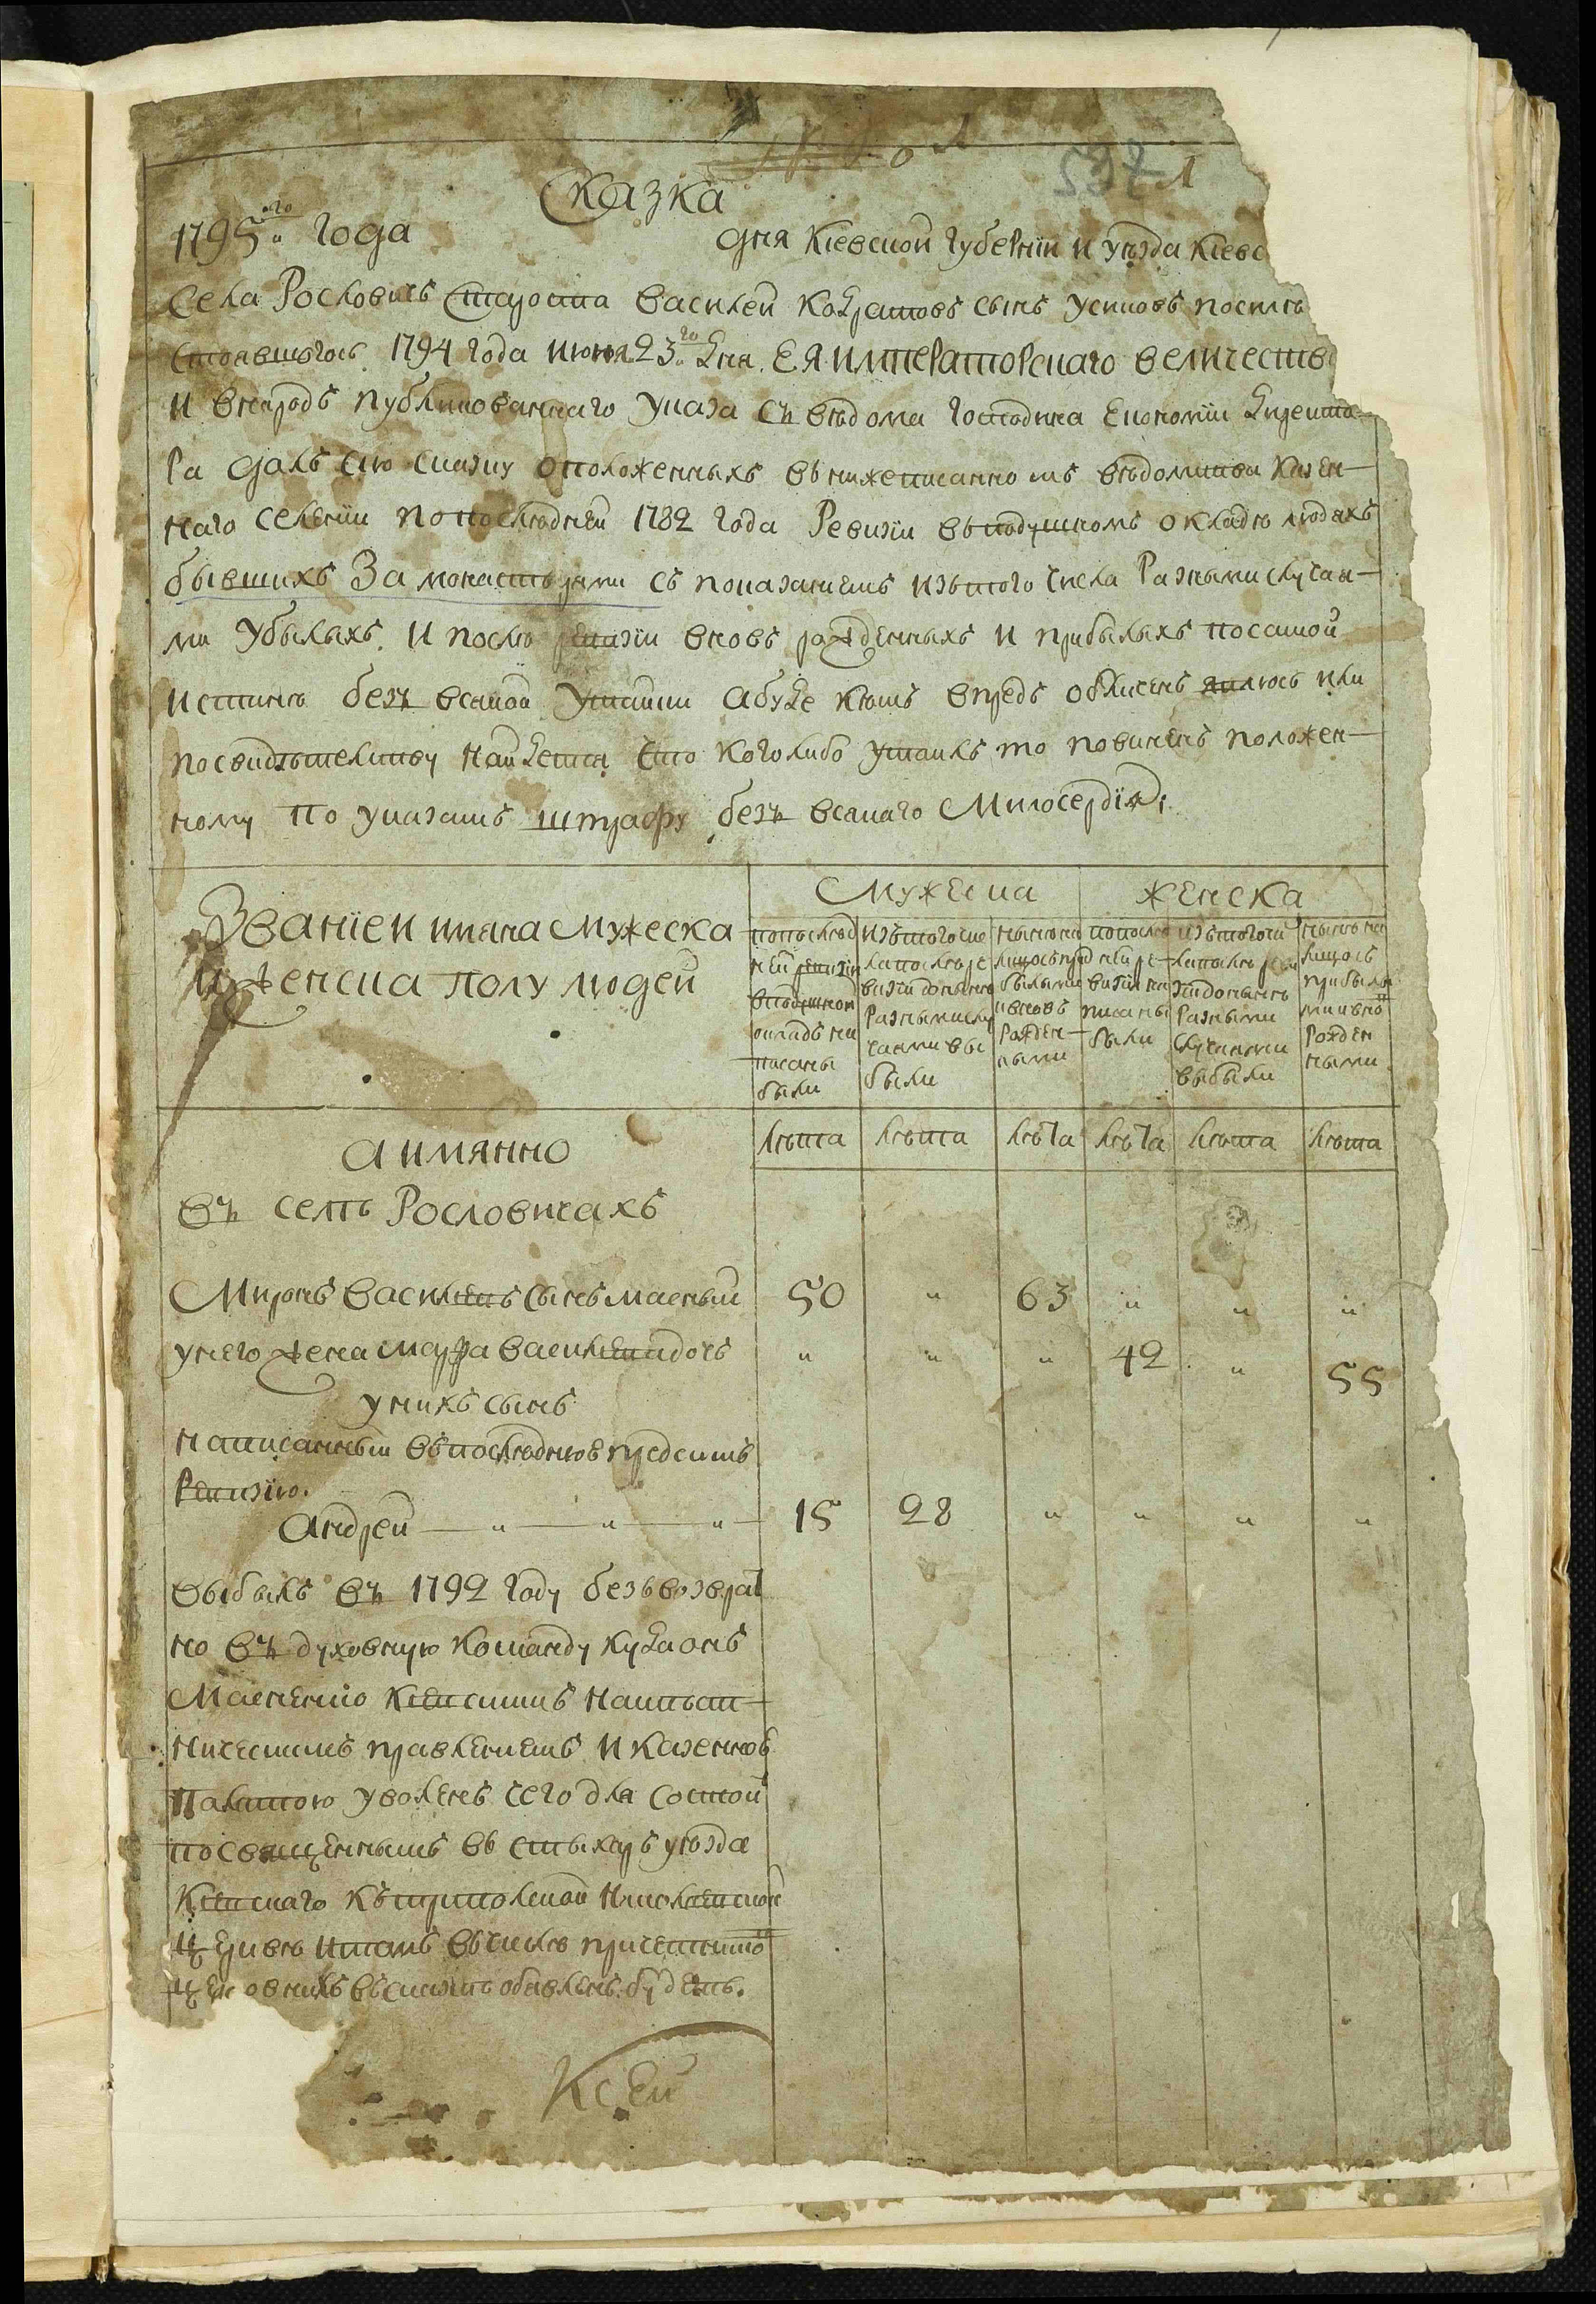 537 1
Сказка
1795го года дня Кіевской губерніи и уѣзда Кіевс
Села Рословичъ Староста Василей Кодратовъ сынъ Усиковъ
стоявшагось 1794 года июня 23го дня. ЕЯ ИМПЕРАТОРСкаго величеств
и внародъ публикованнаго указа съ вѣдома господина Економіи директо-
ра далъ сию сказку оположенныхъ внижеписанномъ вѣдомства казен-
наго селеніи попослѣдней 1782 года Ревизіи вподушномъ окладѣ людяхъ
бывшихъ За монастырями съ показаниемъ изътого числа Разными случая-
ми убылыхъ. И послѣ ревизіи вновь рожденныхъ и прибылыхъ посамой
истиннѣ безъ всякой утайки абуде кѣмъ впредь обличенъ явлюсь или
посвидѣтелству найдется что коголибо утаилъ то повиненъ положен-
ному по указамъ штрафу безъ всякаго Милосердія,
Званіе и имяна Мужеска
и женска полу людей
Мужеска
женска
попослѣд
ней ревизіи
вподушном
окладѣ на
писаны
были
изътогочис
лапослѣре
визіи донынѣ
Разнымислу
чаями вы
были
нынѣна
лицосъпри
былыми
ивновь
рожден-
ными
попослѣ
дней ре-
визіи на
писаны
были
изътогочи
лапослѣ реви
зіидонынѣ
Разными
случаями
выбыли
нынѣ на
лицось
прибылы
миивно
Рожден
ными
лѣта лѣта лѣта лѣта лѣта лѣта
аимянно
въ селѣ Рословичахъ
Миронъ Василевъ сынъ Маскый 50 " 63 " " "
унего жена Марфа Василевадочь " " " 42 " 55
унихъ сынъ
написанный въпослѣднюю предсимъ
Ревизію.
Андрей " " " 15 28 " " " "
выбылъ въ 1792 году безъвозврат
но въ духовную команду куда онъ
Маскенко Киевскимъ намѣст-
ническимъ правлениемъ и казенною
палатою уволенъ чего для состой
посвященнымъ въ стыхарь уѣзда
Киевскаго къ Николаевской
церквѣ тамъ вчислѣ
всказкѣ обявленъ будетъ.
Ксей